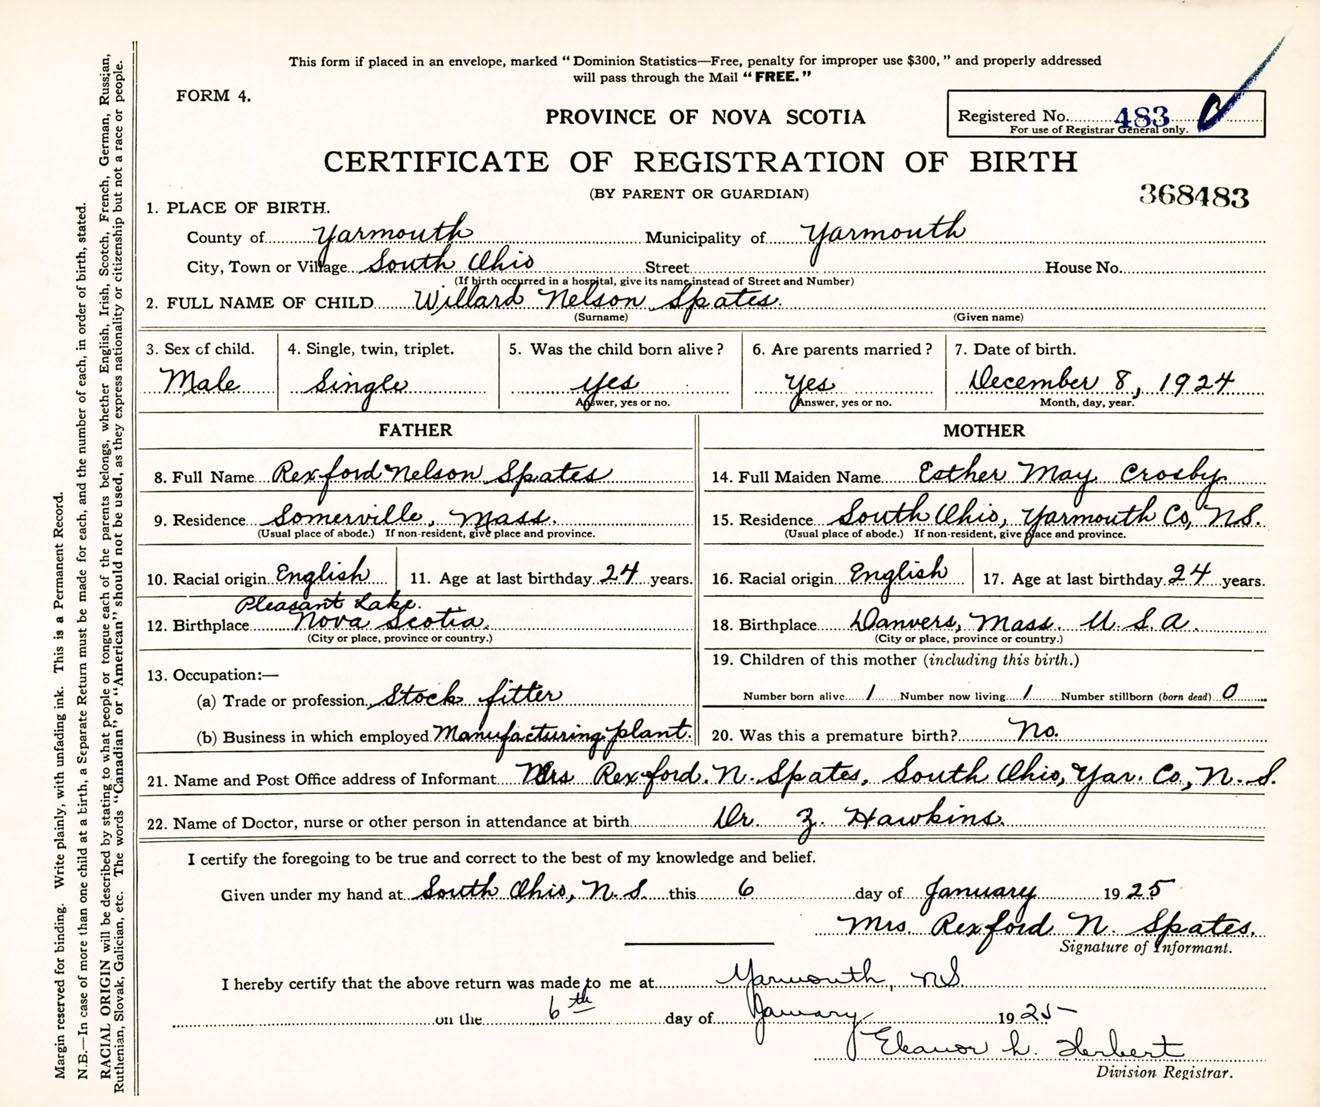 This form if placed in an envelope, marked "Dominion Statistics—Free, penalty for improper use $300," and properly addressed
will pass through the Mail "FREE."
FORM 4.
PROVINCE OF NOVA SCOTIA
Registered No. 483
For use of Registrar General only.
CERTIFICATE OF REGISTRATION OF BIRTH
(BY PARENT OR GUARDIAN)
368483
1. PLACE OF BIRTH.
County of Yarmouth Municipality of Yarmouth
City, Town or Village South Ohio Street House No.
(If birth occurred in a hospital, give its name instead of Street and Number)
2. FULL NAME OF CHILD Willard Nelson Spates.
(Surname) (Given name)
3. Sex of child. 4. Single, twin, triplet. 5. Was the child born alive? 6. Are parents married? 7. Date of birth.
Male Single yes yes December 8, 1924
Answer, yes or no. Answer, yes or no. Month, day, year.
FATHER MOTHER
8. Full Name Rexford Nelson Spates 14. Full Maiden Name Esther May Crosby
9. Residence Somerville, Mass. 15. Residence South Ohio, Yarmouth Co, N.S.
(Usual place of abode.) If non-resident, give place and province. (Usual place of abode.) If non-resident, give place and province.
10. Racial origin English 11. Age at last birthday 24 years. 16. Racial origin English 17. Age at last birthday 24 years.
Pleasant Lake.
12. Birthplace Nova Scotia. 18. Birthplace Danvers, Mass. U.S.A.
(City or place, province or country.) (City or place, province or country.)
13. Occupation:— 19. Children of this mother (including this birth.)
(a) Trade or profession Stock fitter Number born alive 1 Number now living 1 Number stillborn (born dead) 0
(b) Business in which employed Manufacturing plant. 20. Was this a premature birth? No.
21. Name and Post Office address of Informant Mrs Rexford. N. Spates, South Ohio, Yar. Co, N.S.
22. Name of Doctor, nurse or other person in attendance at birth Dr. Z. Hawkins.
I certify the foregoing to be true and correct to the best of my knowledge and belief.
Given under my hand at South Ohio, N.S. this 6 day of January 1925
Mrs. Rexford N. Spates.
Signature of Informant.
I hereby certify that the above return was made to me at Yarmouth, NS
on the 6th day of January 1925
Eleanor L. Herbert
Division Registrar.
Margin reserved for binding. Write plainly, with unfading ink. This is a Permanent Record.
N.B.—In case of more than one child at a birth, a Separate Return must be made for each, and the number of each, in order of birth, stated.
RACIAL ORIGIN will be described by stating to what people or tongue each of the parents belongs, whether English, Irish, Scotch, French, German, Russian,
Ruthenian, Slovak, Galician, etc. The words "Canadian" or "American" should not be used, as they express nationality or citizenship but not a race or people.